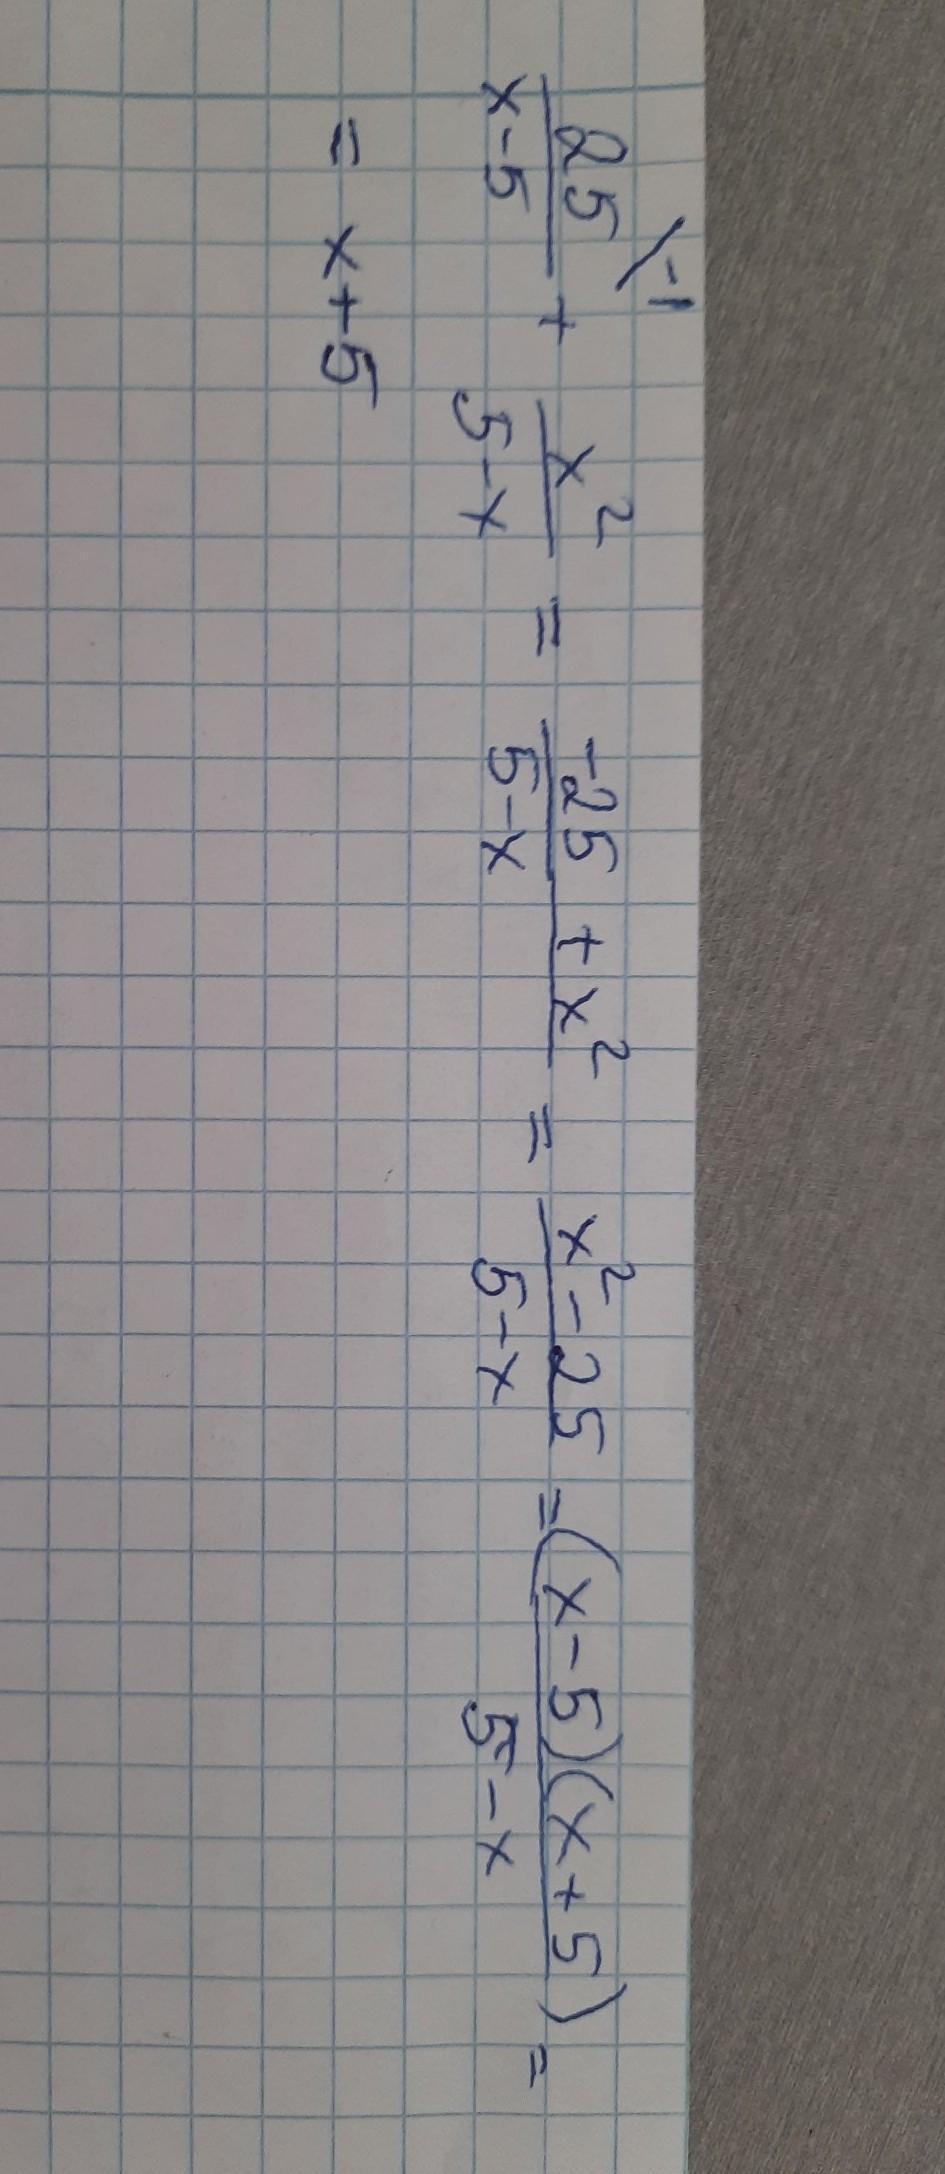 25\-1/(x-5) + x²/(5-x) = (-25+x²)/(5-x) = (x²-25)/(5-x) = (x-5)(x+5)/(5-x) =
= x+5